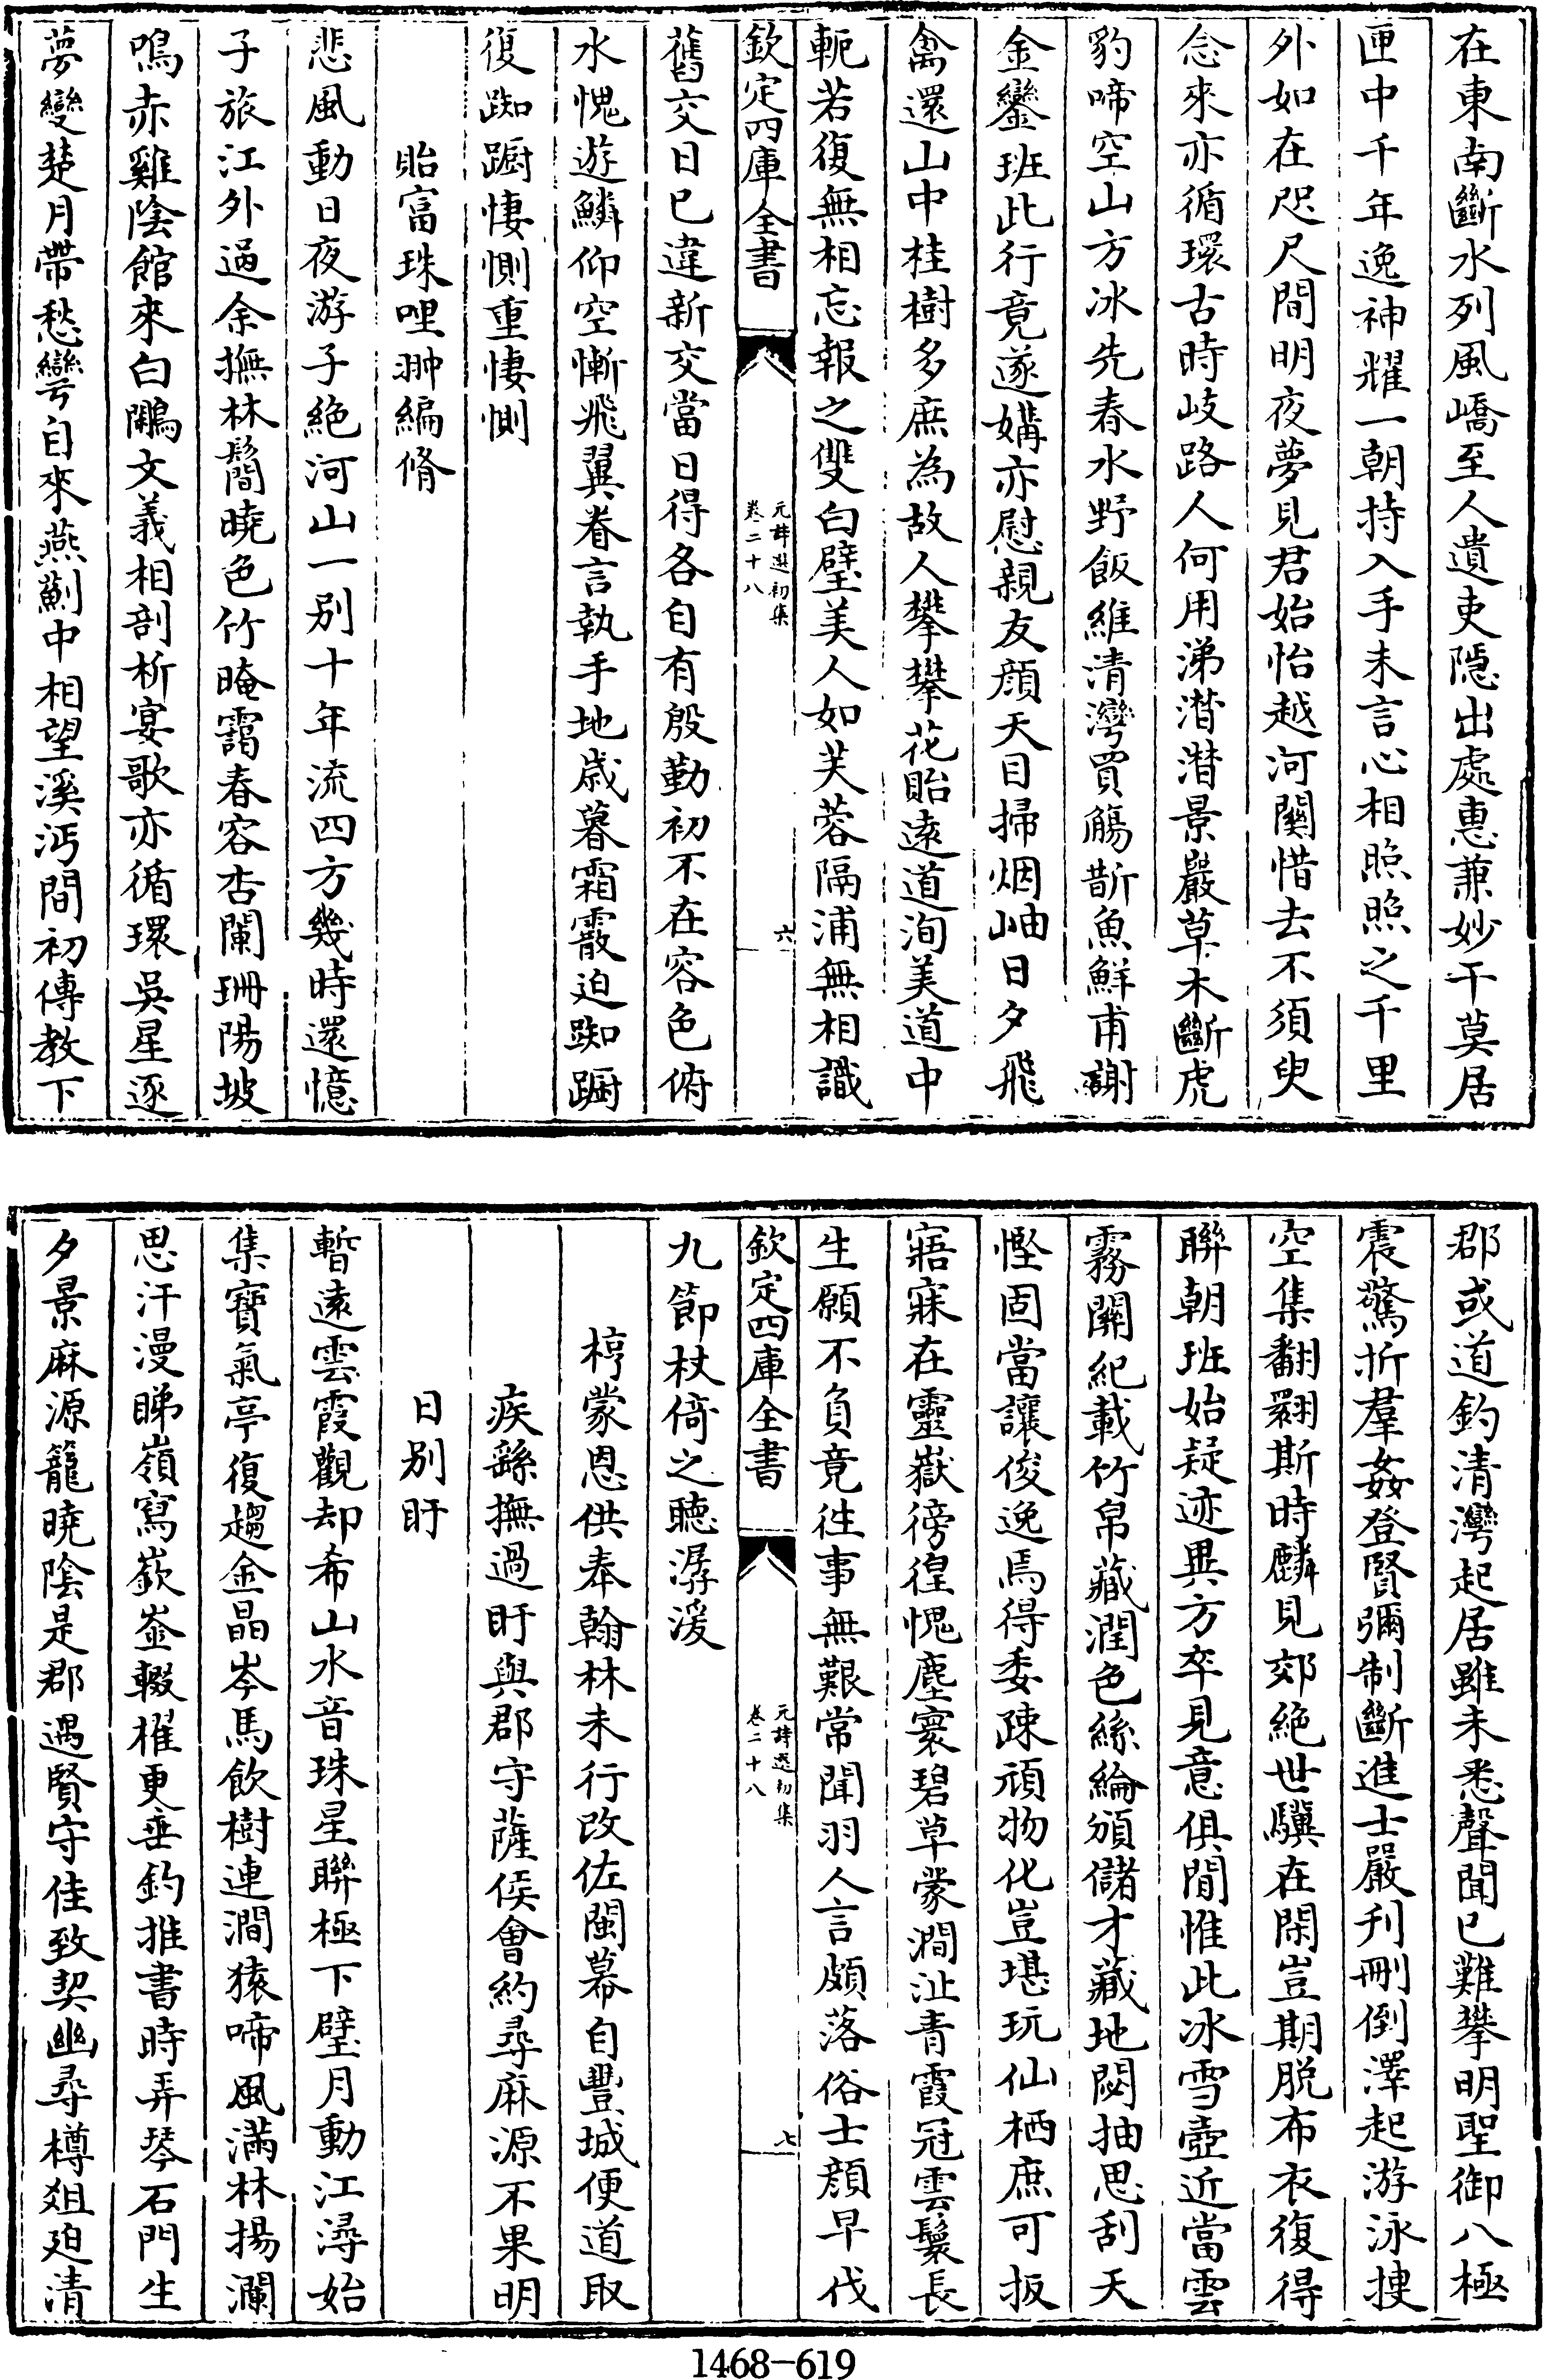 在東南斷水列風嶠至人遺吏隱出處惠兼妙干莫居
匣中千年逸神耀一朝持入手未言心相照照之千里
外如在咫尺間明夜夢見君始怡越河關惜去不須臾
念來亦循環古時岐路人何用涕潸潸景嚴草木斷虎
豹啼空山方冰先春水野飯維清灣賈觴斮魚鮮甫謝
金鑾班此行竟遂媾亦慰親友顔天目掃烟岫日夕飛
禽還山中桂樹多庶為故人攀攀花貽遠道洵美道中
軛若復無相忘報之雙白璧美人如芙蓉隔浦無相識
欽定四庫全書
元詩選初集
卷二十八
六
舊交日已違新交當日得各自有殷勤初不在容色俯
水愧遊鱗仰空慚飛翼眷言執手地歲暮霜霰迫踟蹰
復踟蹰悽惻重悽惻
貽富珠哩翀編脩
悲風動日夜游子絶河山一别十年流四方幾時還憶
子旅江外過余撫林鬜曉色竹晻靄春容杏闌珊陽坡
鳴赤雞陰館來白鷴文義相剖析宴歌亦循環吳星逐
夢變楚月帶愁彎自來燕薊中相望溪沔間初傳教下
郡或道釣清灣起居雖未悉聲聞已難攀明聖御八極
震驚折羣姦登賢彌制斷進士嚴刋刪倒澤起游泳捷
空集翻翾斯時麟見郊絶世驥在閑豈期脱布衣復得
聯朝班始疑迹異方卒見意俱閒惟此冰雪壺近當雲
霧關紀載竹帛藏潤色絲綸頒儲才藏地閟抽思刮天
慳固當讓俊逸焉得委疎頑物化豈堪玩仙栖庶可扳
寤寐在靈嶽徬徨愧塵寰碧草蒙澗沚青霞冠雲鬟長
生願不負竟徃事無艱常聞羽人言頗落俗士顔早伐
欽定四庫全書
元詩選初集
卷二十八
七
九節杖倚之聴潺湲
㮂蒙恩供奉翰林未行改佐閩幕自豐城便道取
疾繇撫過盱與郡守薩侯會約尋麻源不果明
日别盱
暫遠雲霞觀却希山水音珠星聯極下璧月動江潯始
集寶氣亭復趨金晶岑馬飲樹連澗猿啼風滿林揚瀾
思汗漫睇嶺寫嶔崟輟櫂更垂釣推書時弄琴石門生
夕景麻源籠曉陰是郡遇賢守佳致契幽尋樽爼廹清
1468-619